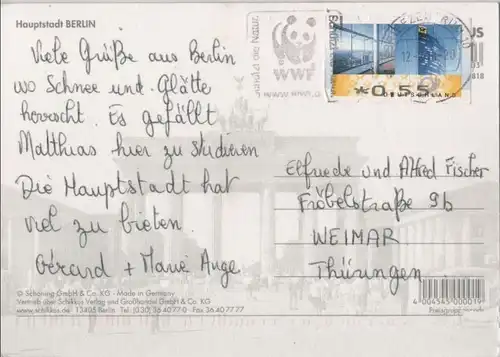 Hauptstadt BERLIN
Viele Grüße aus Berlin
wo Schnee und Glätte
herrscht. Es gefällt
Matthias hier zu studieren
Die Hauptstadt hat
viel zu bieten.
Gérard + Marie Ange
© Schöning GmbH & Co. KG - Made in Germany
Vertrieb über Schikkus Verlag und Großhandel GmbH & Co. KG
www.schikkus.de 13405 Berlin Tel: (030) 36 40 77-0 Fax 36 40 77 77
WWF
*0,55
DEUTSCHLAND
Elfriede und Alfred Fischer
Fröbelstraße 9b
WEIMAR
Thüringen
4 004545 000019